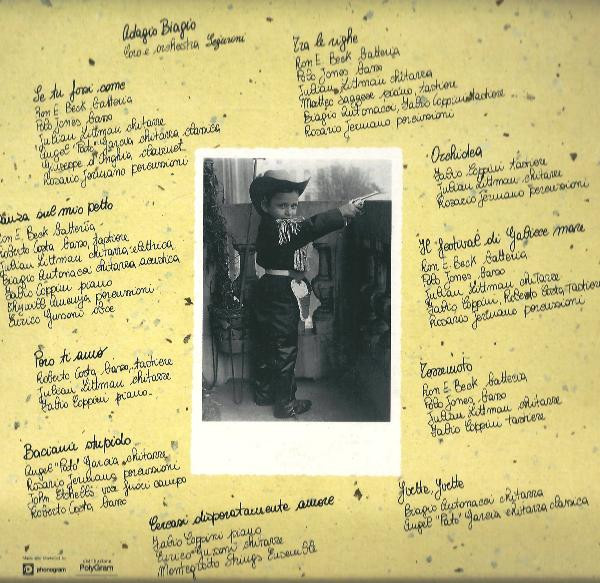 Adagio Biagio
Coro e orchestra Legurini
Se tu fossi come
Ron E. Beck batteria
Polo Jones basso
Julian Littman chitarre
Angel "Pato" Garcia chitarra classica
Giuseppe D'Onghia clarinet
Rosario Jermano percussioni
sul mio petto
Ron E. Beck batteria
Roberto Costa basso, tastiere
Julian Littman chitarra elettrica
Biagio Antonacci chitarra acustica
Fabio Coppini piano
percussioni
Enrico Gunsoni oboe
Però ti amo
Roberto Costa basso, tastiere
Julian Littman chitarre
Fabio Coppini piano
Baciami stupido
Angel "Pato" Garcia chitarre
Rosario Jermano percussioni
John Etchells voce fuori campo
Roberto Costa basso
Cercasi disperatamente amore
Fabio Coppini piano
"Enrico" Gunsoni chitarre
Strings Ensemble
Tra le righe
Ron E. Beck batteria
Polo Jones basso
Julian Littman chitarra
Matteo Saggese piano, tastiere
Biagio Antonacci, Fabio Coppini tastiere
Rosario Jermano percussioni
Orchidea
Fabio Coppini tastiere
Julian Littman chitarre
Rosario Jermano percussioni
Il festival di Gabicce mare
Ron E. Beck batteria
Polo Jones basso
Julian Littman chitarre
Fabio Coppini, Roberto Costa, tastiere
Rosario Jermano percussioni
Terremoto
Ron E. Beck batteria
Polo Jones basso
Julian Littman chitarre
Fabio Coppini tastiere
Yvette, Yvette
Biagio Antonacci chitarra
Angel "Pato" Garcia chitarra classica
phonogram
PolyGram